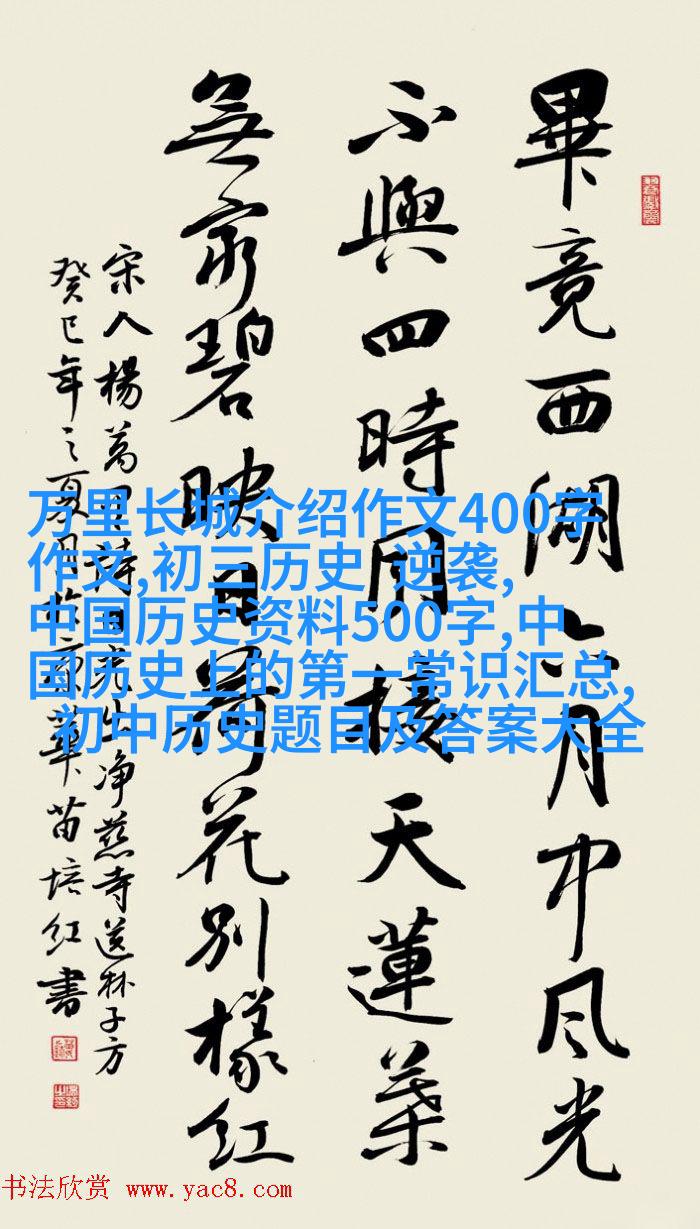 畢竟西湖六月中风光
不與四時同接天蓮葉
無窮碧映日荷花别樣红
宋人楊萬里詩曉出净慈寺送林子方
癸巳年之夏月於京華苗培红書
万里长城介绍作文400字
作文,初三历史 逆袭,
中国历史资料500字,中
国历史上的第一常识汇总,
初中历史题目及答案大全
书法欣赏 www.yac8.com